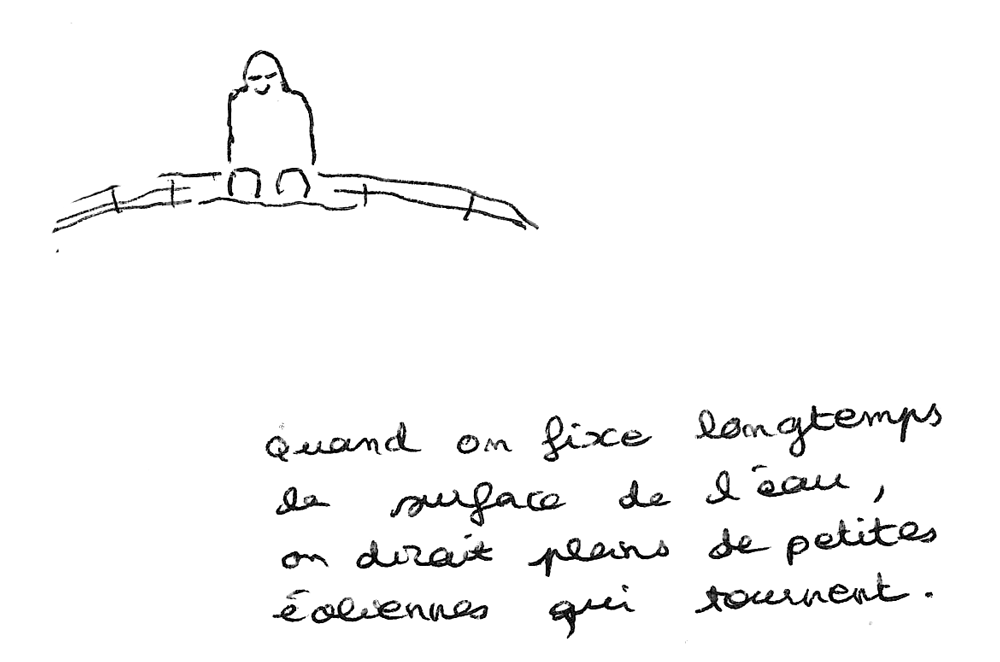 Quand on fixe longtemps
la surface de l'eau,
on dirait pleins de petites
éoliennes qui tournent.